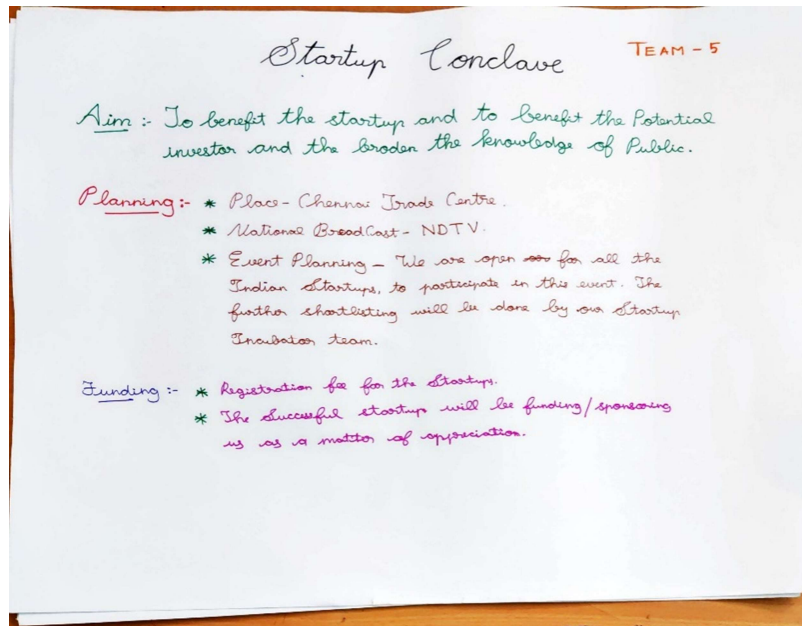 Startup Conclave TEAM - 5
Aim :- To benefit the startup and to benefit the Potential
investor and the broden the knowledge of Public.
Planning :- * Place - Chennai Trade Centre.
* National BroadCast - NDTV.
* Event Planning - We are open for all the
Indian Startups, to participate in this event. The
further shortlisting will be done by our Startup
Incubator team.
Funding :- * Registration fee for the Startups.
* The Successful startup will be funding/sponsoring
us as a matter of appreciation.